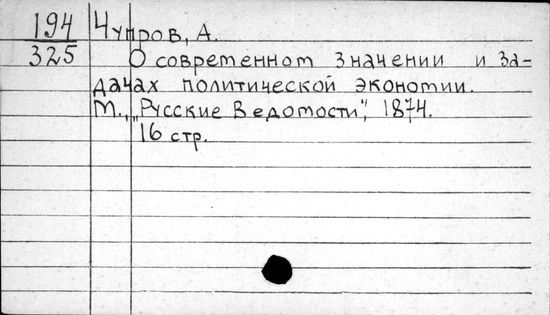 194 Чупров, А.
325 О современном значении и за-
дачах политической экономии.
М., „Русские Ведомости“, 1874.
16 стр.